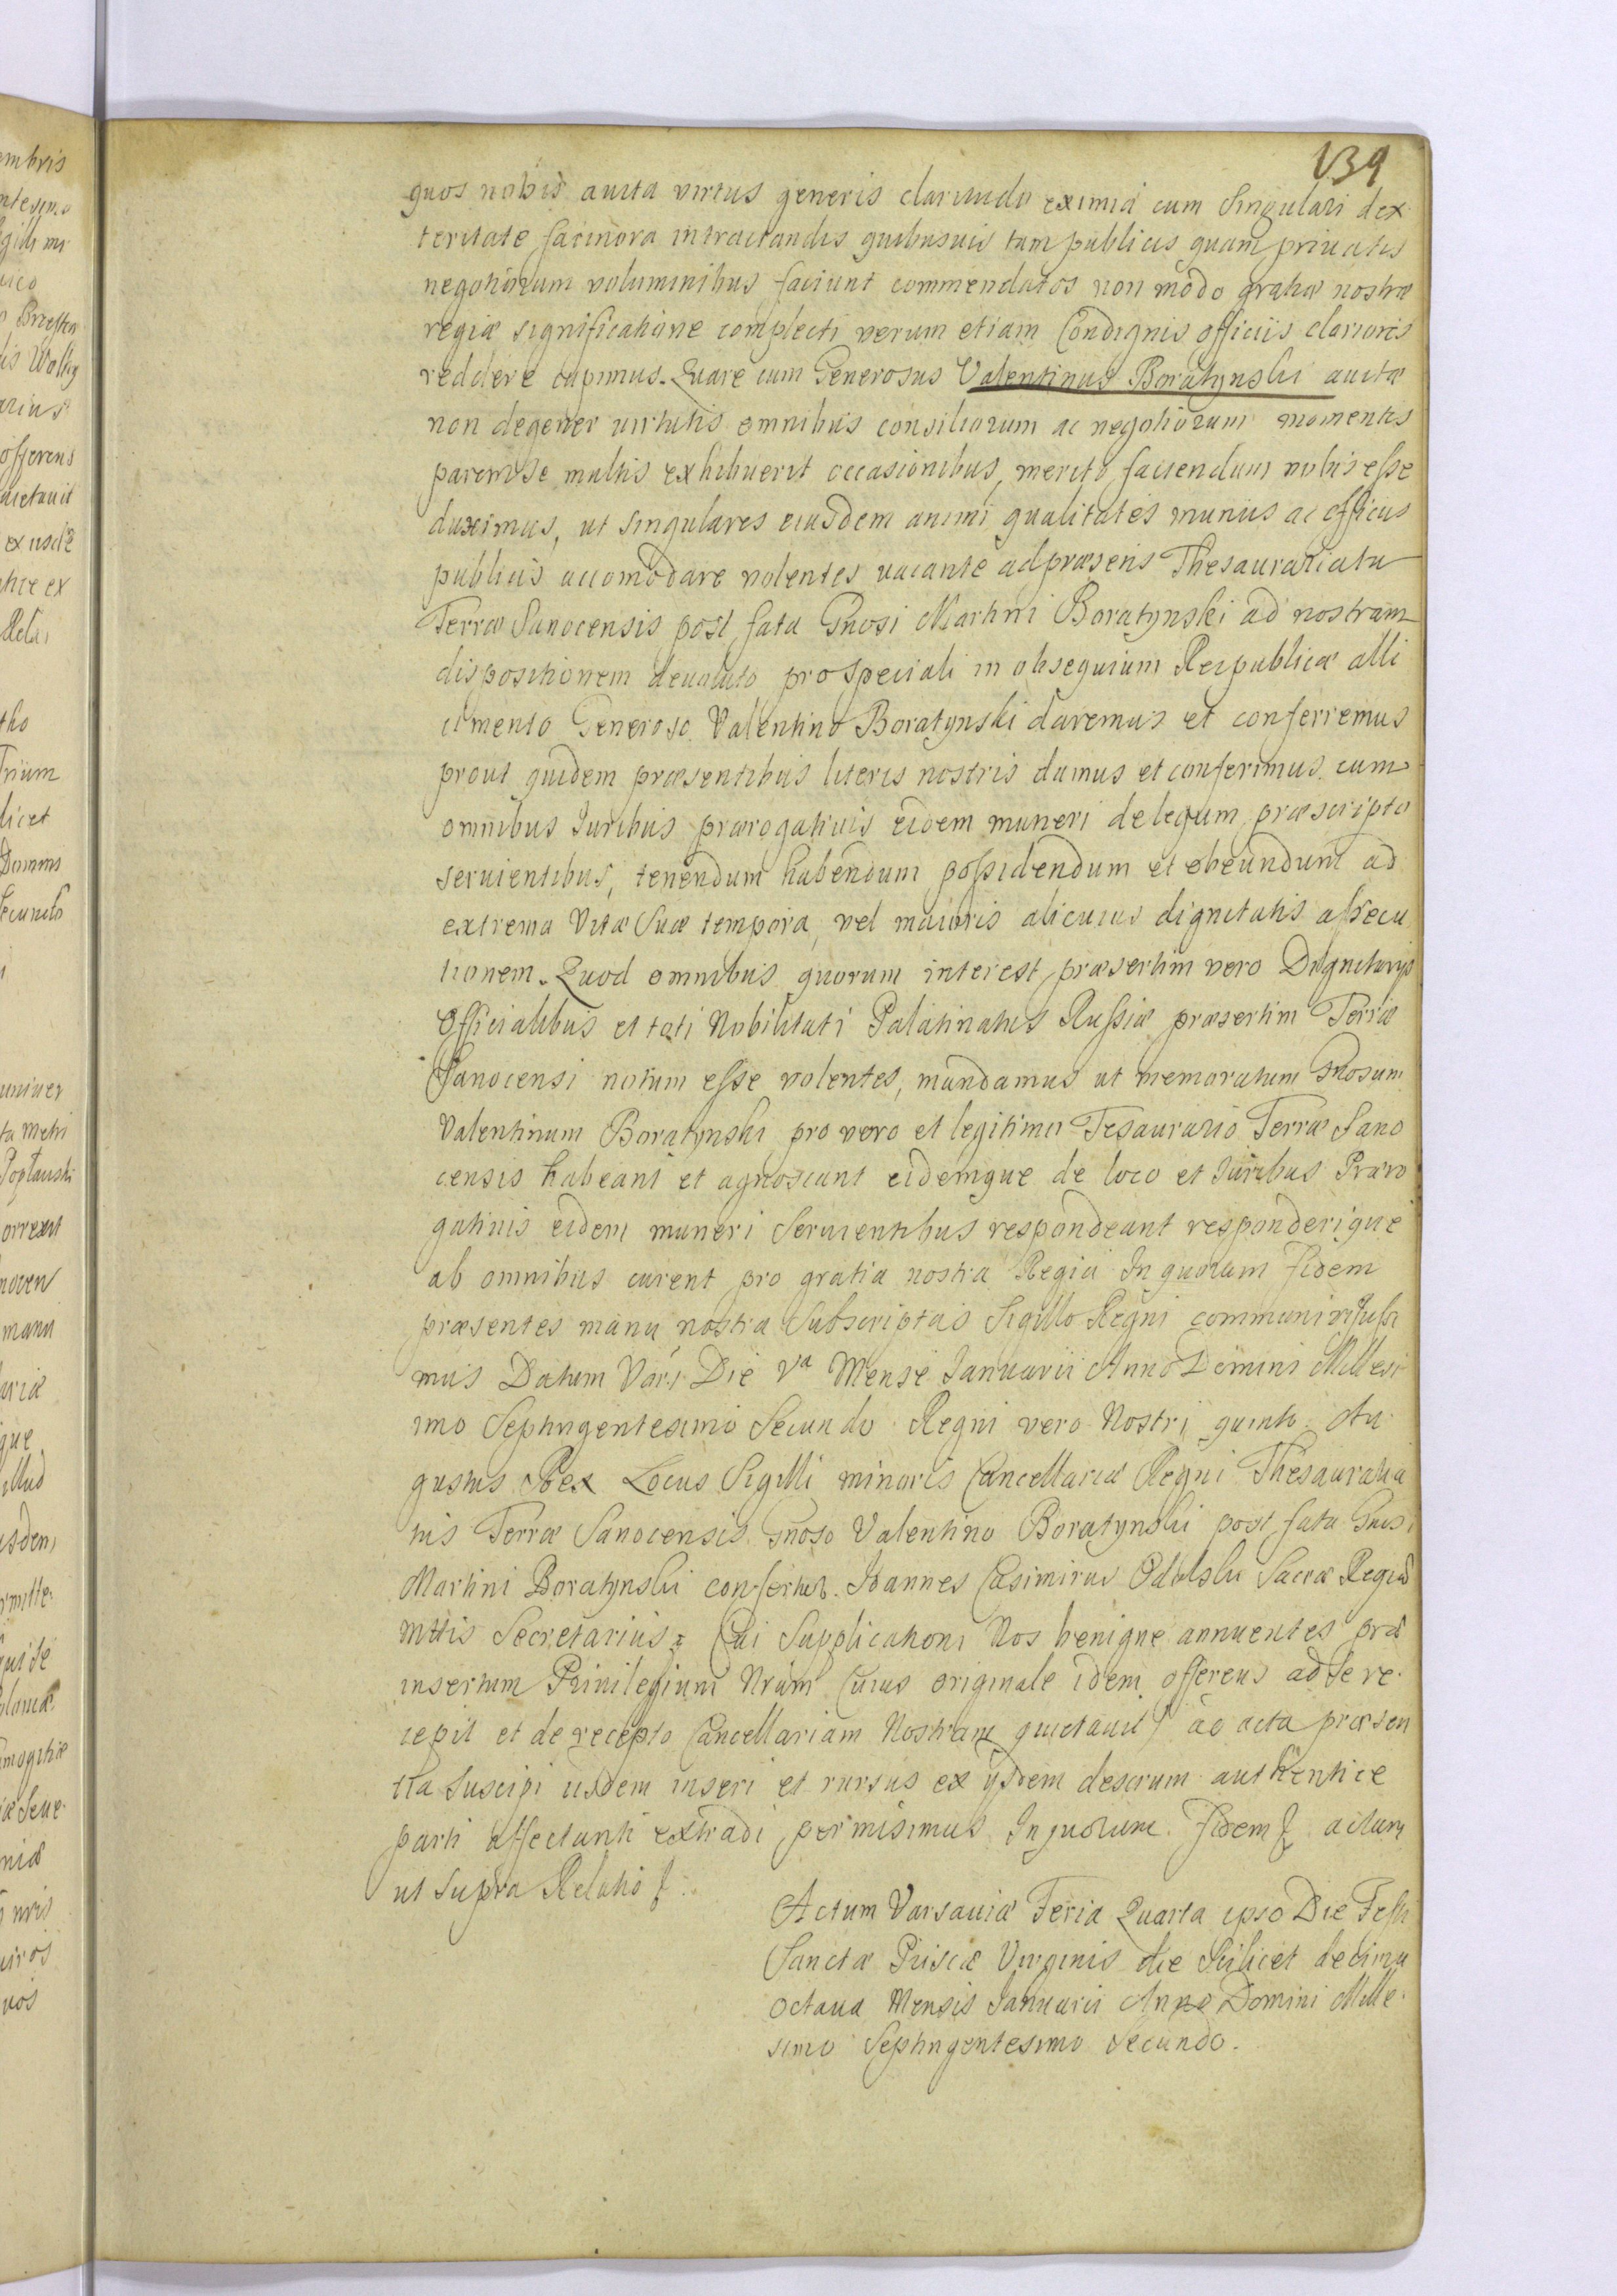 139
quos nobis auita virtus generis claritudo eximia cum Singulari dex
teritate facinora intractandis quibusuis tam publicis quam priuatis
negotiorum voluminibus faciunt commendatos non modo gratiæ nostræ
regiæ significatione complecti verum etiam Condignis officiis clariores
reddere cupimus. Quare cum Generosus Valentinus Boratynski auitæ
non degener uirtutis omnibus consiliorum ac negotiorum momentis
parem se multis exhibuerit occasionibus, merito faciendum nobis esse
duximus, ut singulares eiusdem animi qualitates muniis ac officiis
publicis accomodare volentes vacante ad præsens Thesaurariatu
Terræ Sanocensis post fata Gnosi Martini Boratynski ad nostram
dispositionem deuoluto pro speciali in obsequium Reipublicæ alli
cimento Generoso Valentino Boratynski daremus et conferremus
prout quidem præsentibus literis nostris damus et conferimus cum
omnibus Iuribus prærogatiuis eidem muneri de legum præscripto
seruientibus, tenendum habendum possidendum et obeundum ad
extrema Vitæ Suæ tempora, vel maioris alicuius dignitatis assecu
tionem. Quod omnibus quorum interest, præsertim vero Dignitarys
Officialibus et toti Nobilitati Palatinatus Russiæ præsertim Terræ
Sanocensi notum esse volentes, mandamus ut memoratum Gnosum
Valentinum Boratynski pro vero et legitimo Tesaurario Terræ Sano
censis habeant et agnoscant eidemque de loco et Iuribus Præro
gatiuis eidem muneri Seruientibus respondeant responderique
ab omnibus curent pro gratia nostra Regia In quorum fidem
præsentes manu nostra Subscriptas Sigillo Regni communiri Jussi
mus Datum Vars. Die Va Mense Ianuarii Anno Domini Millesi
imo Septingentesimo Secundo Regni vero Nostri quinto. Au
gustus Rex Locus Sigilli minoris Cancellariæ Regni Thesauraria
tus Terræ Sanocensis Gnoso Valentino Boratynski post fata Gnosi
Martini Boratynski confertur. Ioannes Casimirus Odolski Sacræ Regiæ
Mttis Secretarius. Cui Supplicationi Nos benigne annuentes præ
insertum Priuilegium Nrum Cuius originale idem offerens ad se re
cepit et de recepto Cancellariam Nostram quietauit) ac acta præsen
tia Suscipi iisdem inseri et rursus ex ysdem descrum authentice
parti affectanti extradi permisimus In quorum fidem actum
ut Supra Relatio
Actum Varsauiæ Feria Quarta ipso Die Festi
Sanctæ Priscæ Virginis die Scilicet decima
octaua Mensis Ianuarii Anno Domini Mille
simo Septingentesimo Secundo.